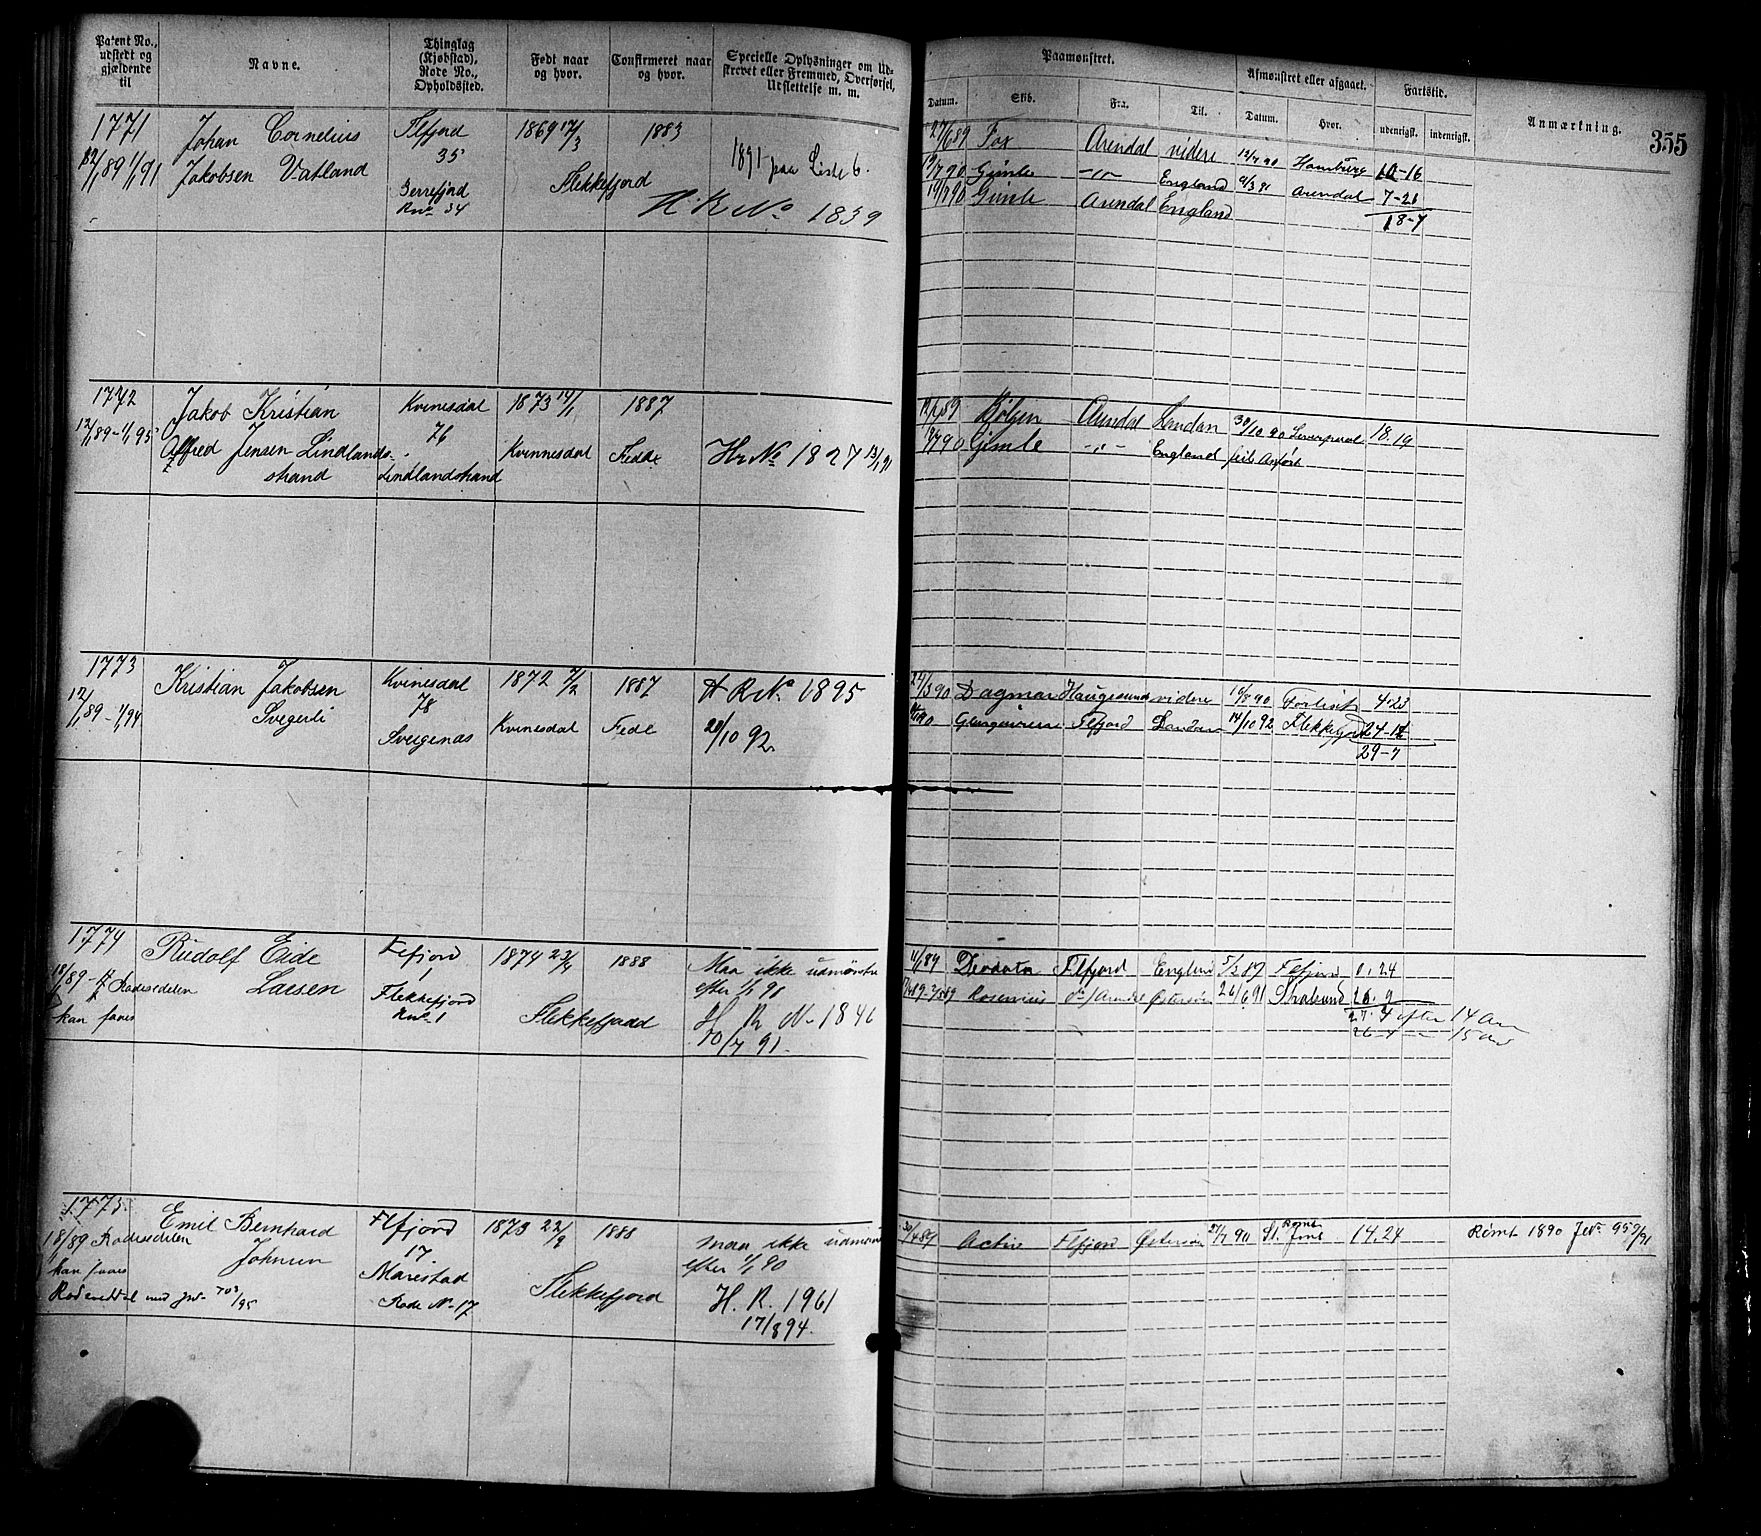 Patent No., udstedt og gjældende til
Navne.
Thinglag (Kjøbstad), Rode No., Opholdssted.
Født naar og hvor.
Confirmeret naar og hvor.
Specielle Oplysninger om Udskrevet eller Fremmed, Overførsel, Udslettelse m. m.
Paamønstret.
Datum.
Skib.
Fra.
Til.
Afmønstret eller afgaaet.
Datum.
Hvor.
Fartstid.
udenrigsk.
indenrigsk.
Anmærkning.
355
1771
Johan Cornelius
Jakobsen Vatland
Flfjord
35
Rno 34
1869 17/3
Flekkefjord
1883
1891 paa Liste 6.
H.R No 1839
27/6 89 Fox Arendal videre 12/7 90 Hamburg 10-16
Gimle -"- England 9/3 91 Arendal 7-21
Gimle Arendal England
18-7
1772
12/1 89-1/1 95
Jakob Kristian
Alfred Jensen Lindlands-
strand
Kvinesdal
76
Lindlandstrand
1873 14/1
Kvinnesdal
1887
Fedde
H R No 1827 13/1 91
Bølgen Arendal London 30/10 90 Liverpool 18.19
Gimle -"- England feil Anført
1773
12/1 89-1/1 94
Kristian Jakobsen
Svegerli
Kvinesdal
78
Sveigenas
1872 7/2
Kvinesdal
1887
Fede
H R No 1895
20/10 92
Dagmar Haugesund videre 16/8 90 4.23
Flfjord London 14/10 92 Flekkefjord 24-14
29-7
1774
Rudolf Eide
Larsen
18/1 89 Rodesedelen
kan faaes
Flfjord
1
Flekkefjord
Rno 1
1874 23/4
Flekkefjord
1888
Maa ikke udmønstre
efter 1/1 90
H R No 1846
10/7 91.
Deodata Flfjord England 5/3 89 Flfjord 0.24
Østersøe 26/6 91 Stralsund 26.9
27. 4 efter 14 Aar
26-4 - 15 Aar
1775
18/1 89 Rodesedelen
kan faaes
Emil Bernhard
Johnsen
Flfjord
17
Marestad
Rode No 17
1873 22/9
Flekkefjord
1888
maa ikke udmønstre
efter 1/1 90
H. R. 1961
17/8 94.
30/4 89 Active Flfjord Østersøe 27/7 90 St. Rømt 14.24
Rømt 1890 Jno 95 9/5 91